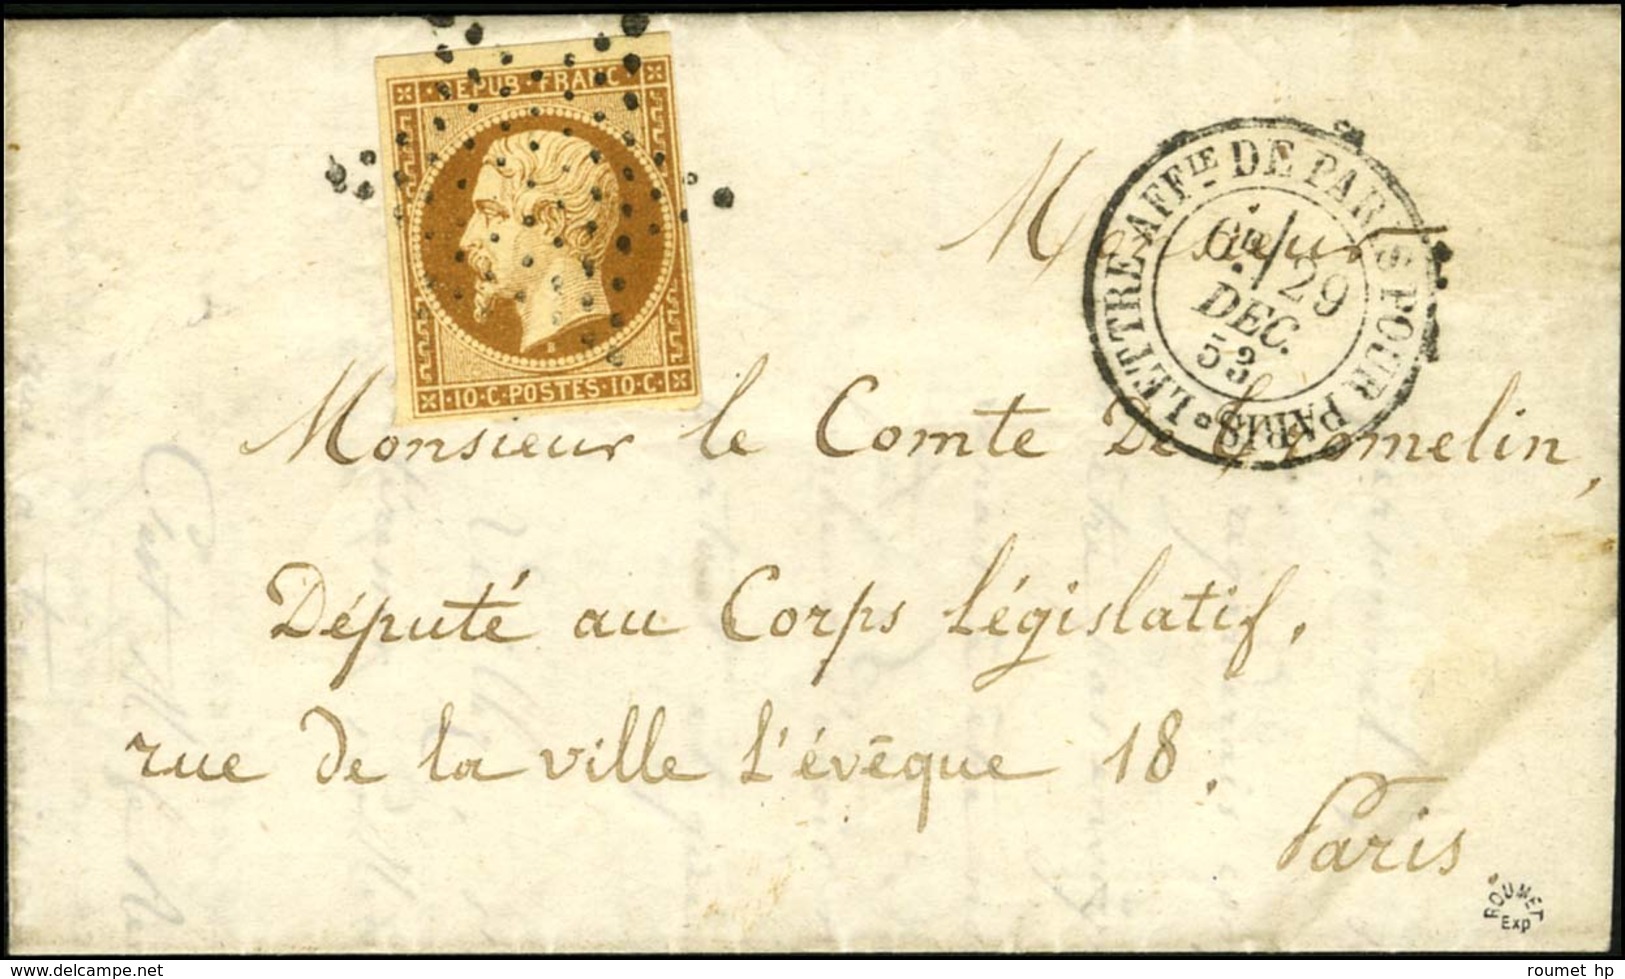 REPUB·FRANC·
B
·10·C·POSTES·10·C·
LETTRE AFF^IE. DE PARIS POUR PARIS
6^E/
29
DEC.
53
Monsieur
Monsieur le Comte De Chomelin,
Député au Corps Législatif,
rue de la ville l'évêque 18.
Paris
ROUMET
Exp
www.delcampe.net
roumet hp